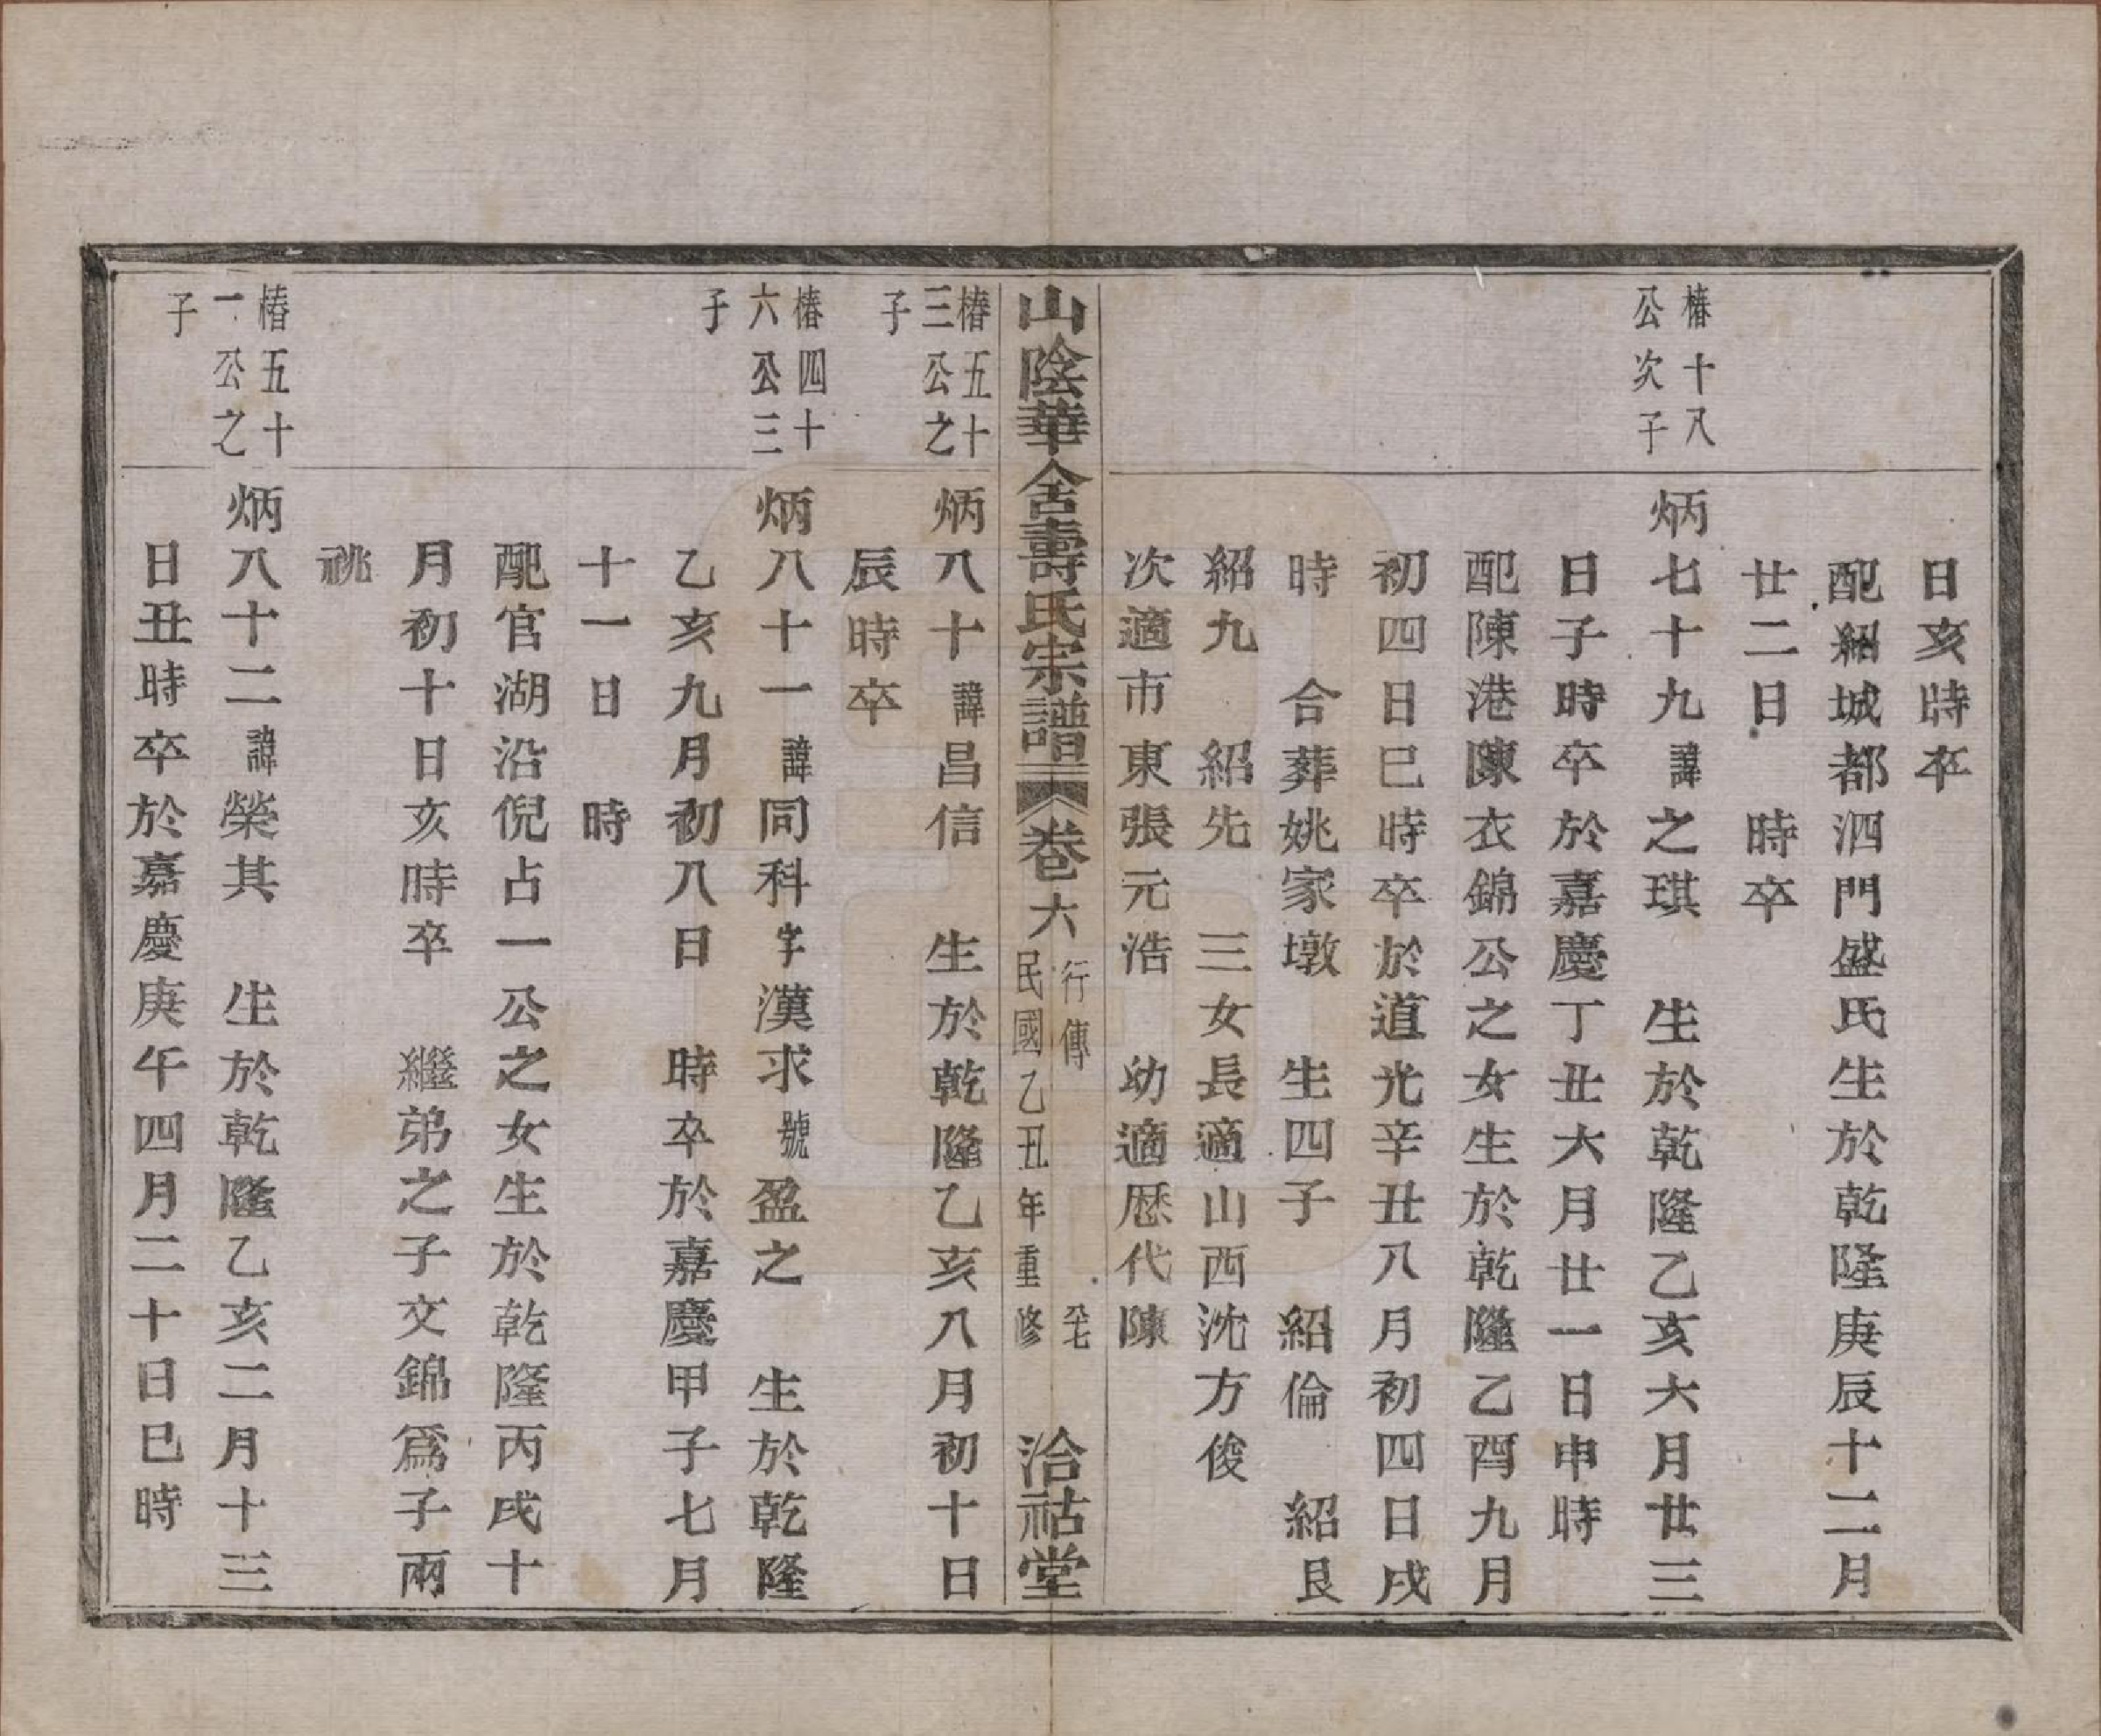 日亥時卒
配紹城都泗門盛氏生於乾隆庚辰十二月
廿二日　時卒
椿十八
公次子
炳七十九諱之琪　生於乾隆乙亥六月廿三
日子時卒於嘉慶丁丑六月廿一日申時
配陳港陳衣錦公之女生於乾隆乙酉九月
初四日巳時卒於道光辛丑八月初四日戌
時　合葬姚家墩　生四子　紹倫　紹良
紹九　紹先　三女長適山西沈方俊
次適市東張元浩　幼適歷代陳
山陰華舍壽氏宗譜　卷六
行傳
民國乙丑年重修
洽祜堂
椿五十
三公之
子
炳八十諱昌信　生於乾隆乙亥八月初十日
辰時卒
椿四十
六公三
子
炳八十一諱同科字漢求號盈之　生於乾隆
乙亥九月初八日　時卒於嘉慶甲子七月
十一日　時
配官湖沿倪占一公之女生於乾隆丙戌十
月初十日亥時卒　繼弟之子文錦爲子兩
祧
椿五十
一公之
子
炳八十二諱榮其　生於乾隆乙亥二月十三
日丑時卒於嘉慶庚午四月二十日巳時